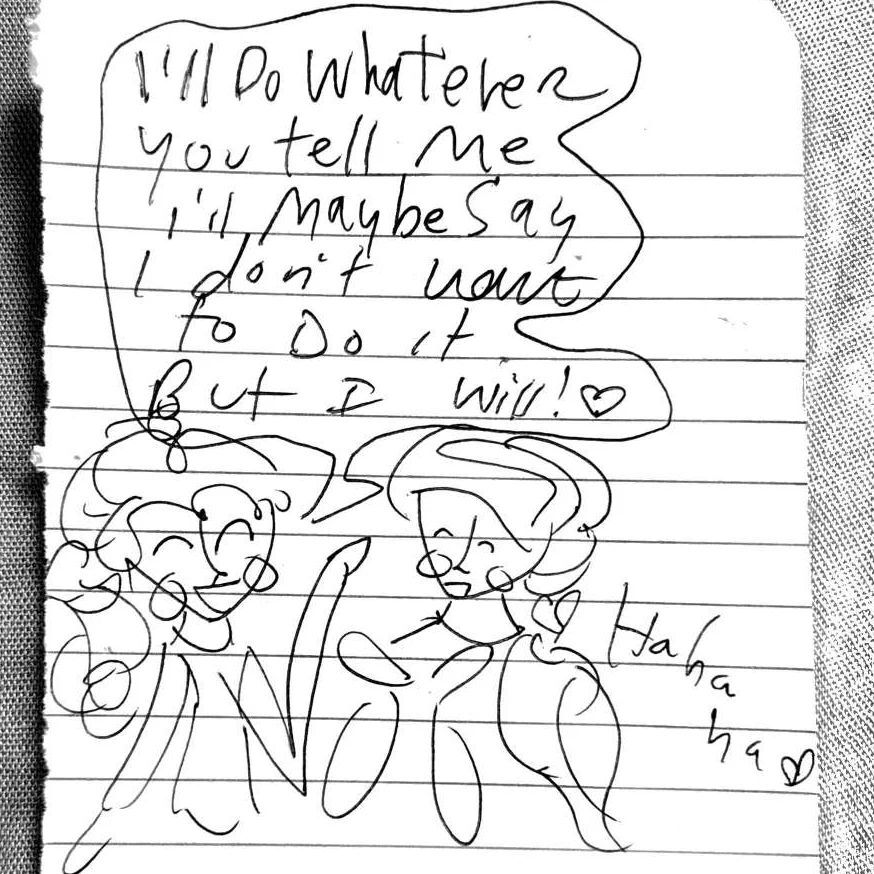 I'll Do Whatever
you tell Me
I'll Maybe Say
I don't want
to Do it
But I will! ♡
Ha ha
ha ♡